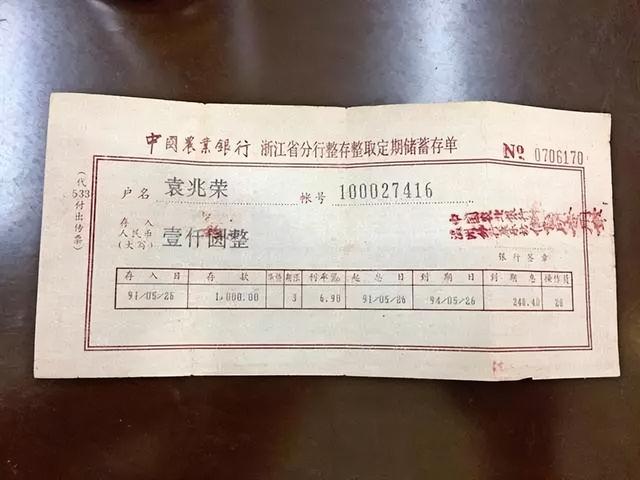 中國農業銀行 浙江省分行整存整取定期储蓄存单
№ 0706170
(代533付出传票)
户名 袁兆荣 帐号 100027416
存入人民币(大写) 壹仟圆整
银行签章
存入日 存款 期限 利率% 起息日 到期日 到期息 操作员
91/05/26 1,000.00 3 6.90 91/05/26 94/05/26 248.40 28